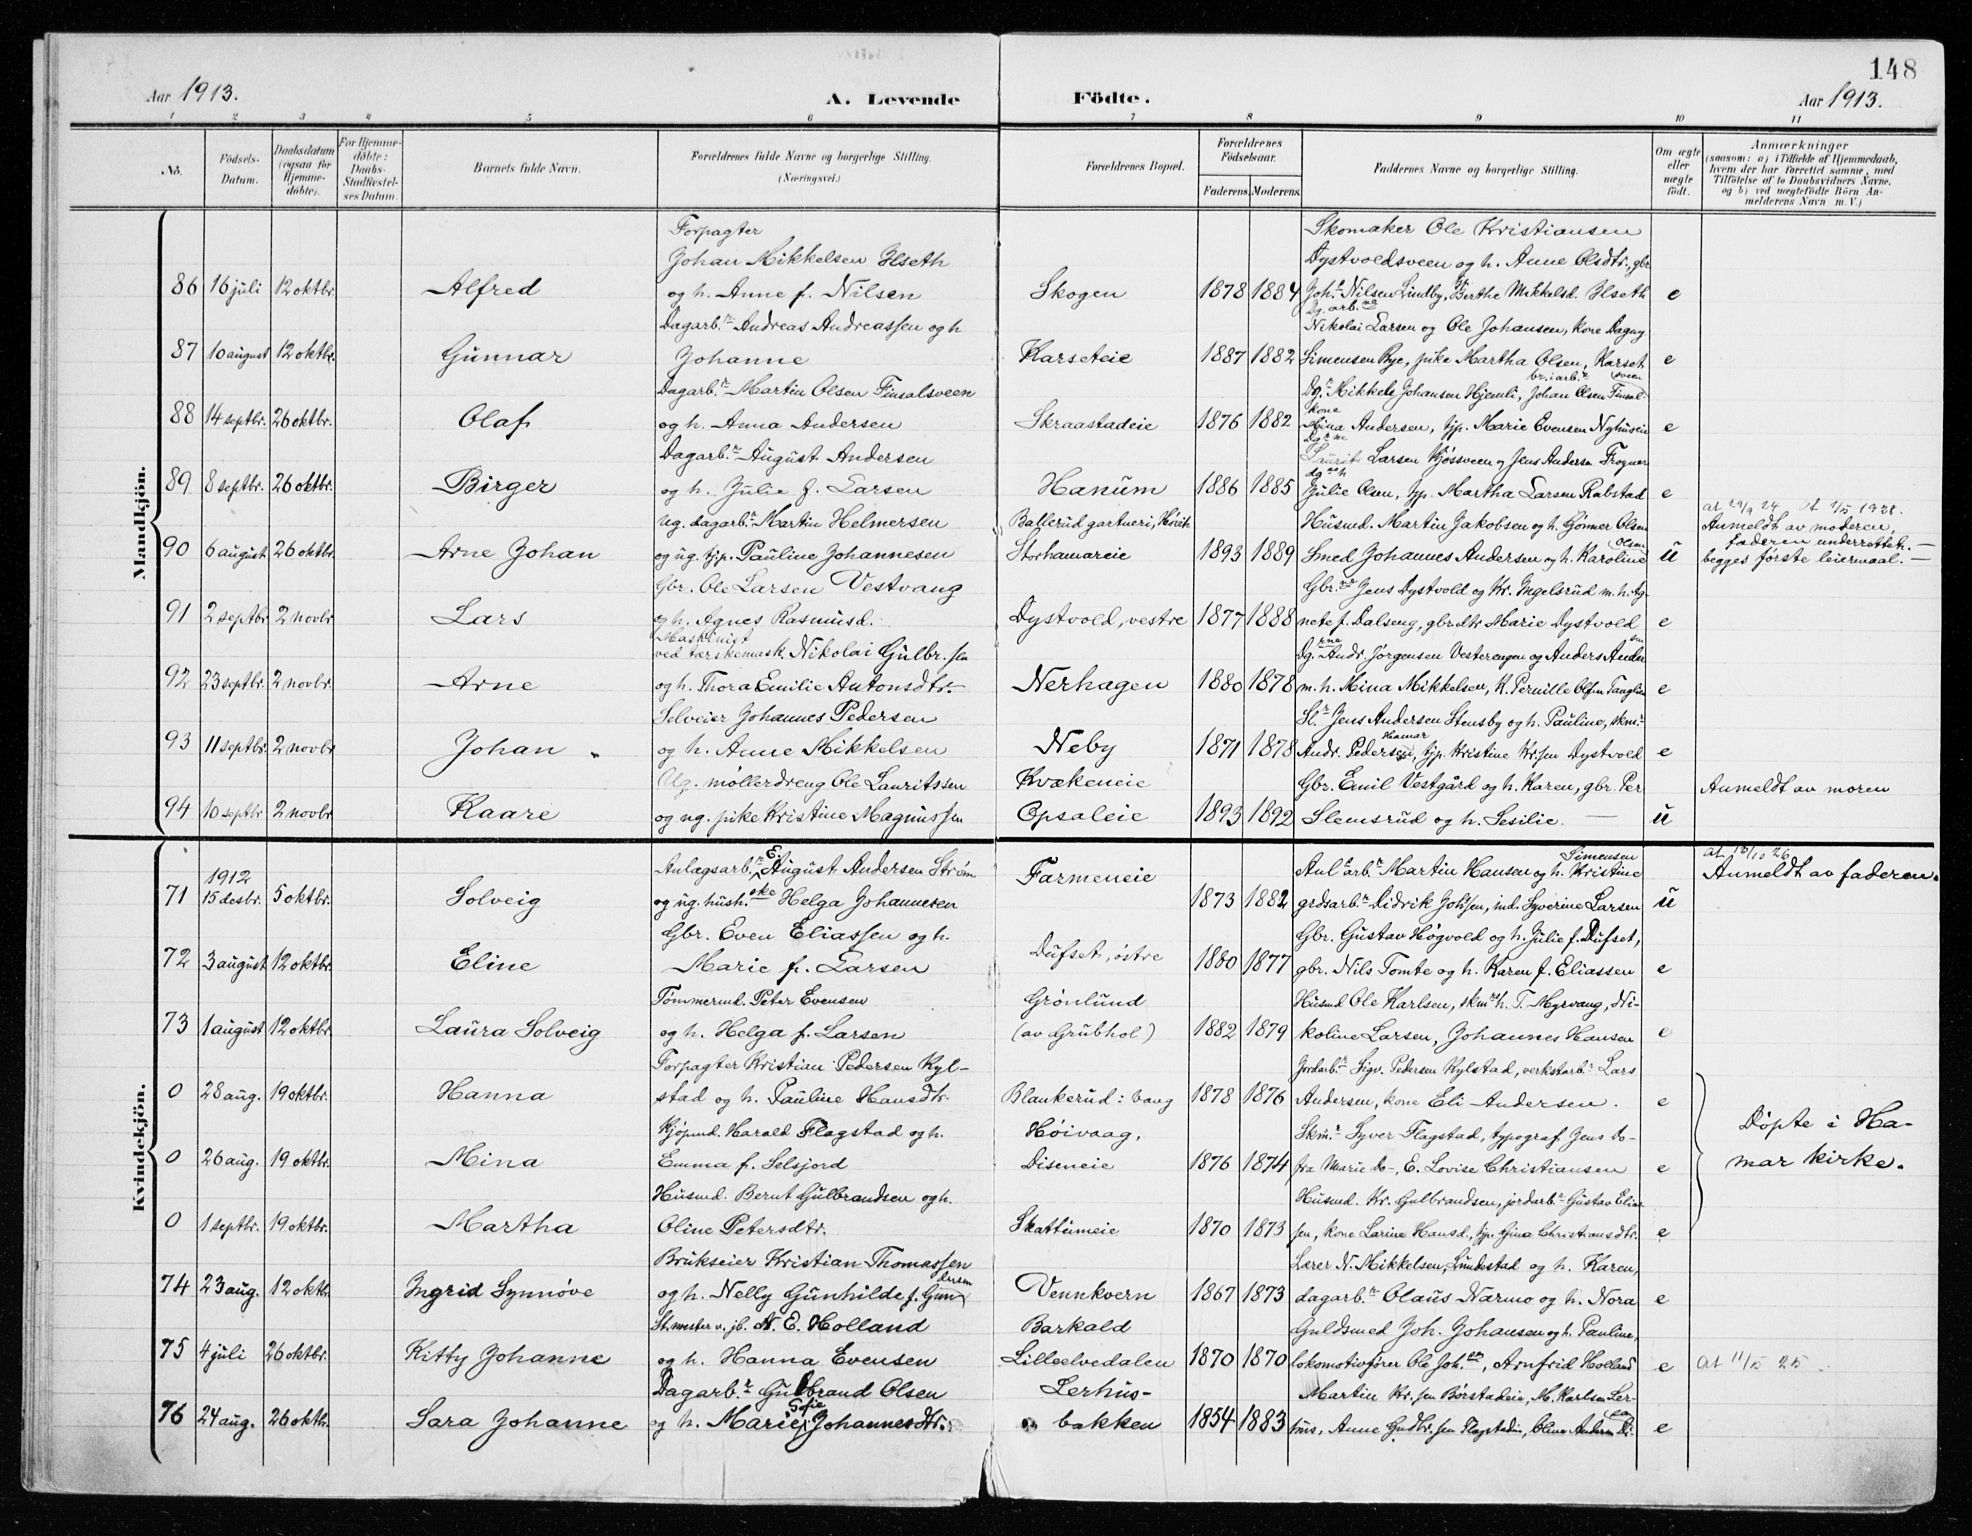 148
Aar 1913.
A. Levende
Födte.
Aar 1913.
1 2 3 4 5 6 7 8 9 10 11
No.
Födsels-Datum.
Daabsdatum (ogsaa for Hjemmedöbte).
For Hjemmedöbte: Daabs-Stadfæstelses Datum.
Barnets fulde Navn.
Forældrenes fulde Navne og borgerlige Stilling. (Næringsvei.)
Forældrenes Bopæl.
Forældrenes Födselsaar.
Faderens. Moderens.
Faddernes Navne og borgerlige Stilling.
Om ægte eller uægte födt.
Anmærkninger
(saasom: a) i Tilfælde af Hjemmedaab,
hvem der har forrettet samme, med
Tilföielse af to Daabsvidners Navne,
og b) ved uægtefödte Börn Anmelderens Navn m. V.)
Mandkjön.
Forpagter
Johan Mikkelsen Ilseth
Skomaker Ole Kristiansen
Dystvoldsveen og h. Anne Olsdtr., gbr
86 16 juli 12 oktbr. Alfred og h. Anne f. Nilsen Skogen 1878 1884 Joh. Nilsen Lindby, Berthe Mikkelsd. Ilseth e
Dagarb. Andreas Andreassen og h
Nikolai Larsen og Ole Johansen, kone Dagny
87 10 august 12 oktbr. Gunnar Johanne Karseteie 1887 1882 Simensen Bye, pike Martha Olsen, Karset e
Dagarb. Martin Olsen Finsalsveen
Dg. Mikkel Johansen Hjemli, Johan Olsen
88 14 septbr. 26 oktbr. Olaf og h. Anna Andersen Skraastadeie 1876 1882 Andersen, tjp. Marie Evensen e
Dagarb. August Andersen
Larsen Kjösveen og Jens Andersen Frogner
89 8 septbr. 26 oktbr. Birger og h. Julie f. Larsen Hanum 1886 1885 Julie Olsen, tjp. Martha Larsen Rabstad e
Ug. dagarb. Martin Helmersen Ballerud gartneri,
Husmd. Martin Jakobsen og h. Gönner Olsen
Anmeldt av moderen,
faderen underrettet. —
90 6 august 26 oktbr. Arne Johan og ug. tjp. Pauline Johannesen Storhamareie 1893 1889 Smed Johannes Andersen og h. Karoline Olsen u begges første leiermaal. —
Gbr. Ole Larsen Vestvang
Gbr. Jens Dystvold og Kr. Ingelsrud m. h. Ag-
91 2 septbr. 2 novbr. Lars og h. Agnes Rasmusd. Dystvold, vestre 1877 1888 nete f. Dalseng, gbr.dtr Marie Dystvold e
Maskinist
ved tærskemask. Nikolai Gulbr.sen
Dg. Andr. Jörgensen Vesterengen og Anders Ander
92 23 septbr. 2 novbr. Arne og h. Thora Emilie Antonsdtr. Nerhagen 1880 1878 m. h. Mina Mikkelsen, K. Pernille Olsen e
Selveier Johannes Pedersen
Sl. Jens Andersen Stensby og h. Pauline, skm.
93 11 septbr. 2 novbr. Johan og h. Anne Mikkelsen Neby 1871 1878 Andr. Pedersen, Hamar tjp. Kristine Kr.sen Dystvold e
Ug. møllerdreng Ole Lauritssen Kvækeneie
Gbr. Emil Vestgård og h. Karen, gbr. Per Anmeldt av moren
94 10 septbr 2 novbr. Kaare og ug. pike Kristine Magnussen Opsaleie 1893 1892 Slemsrud og h. Sesilie. — u
Kvindekjön.
1912
Anlægsarb. E. August Andersen Ström Farmeneie
Anl. arb. Martin Hansen og h. Kristine Simensen
at 13/10 26
Anmeldt av faderen.
71 15 desbr. 5 oktbr. Solveig og ug. hush. Helga Johannesen 1873 1882 grdsarb. Didrik Joh.sen, ind. Syverine Larsen u
Gbr. Even Eliassen og h.
Gbr. Gustav Høgvold og h. Julie f. Dufset,
72 3 august 12 oktbr. Eline Marie f. Larsen Dufset, østre 1880 1877 gbr. Nils Tomte og h. Karen f. Eliassen e
Tömmermd. Peter Evensen Grönlund
Husmd Ole Karlsen, skm. h. T. Myrvang, Ni-
73 1 august 12 oktbr. Laura Solveig og h. Helga f. Larsen (av Grubhol) 1882 1879 koline Larsen, Johannes Hansen e
Forpagter Kristian Pedersen Kyl-
Jordarb. Sigv. Pedersen Kylstad, verkstarb. Lars
0 28 aug. 19 oktbr. Hanna stad og h. Pauline Hansdtr. Blankerud: vang 1878 1876 Andersen, kone Eli Andersen. e
Kjöpmd. Harald Flagstad og h. Höivaag,
Skm. Syver Flagstad, typograf Jens do-
Döpte i Ha-
mar kirke.
0 26 aug. 19 oktbr. Mina Emma f. Selsjord Diseneie 1876 1874 fra Marie do-, E. Lovise Christiansen e
Husmd. Bernt Gulbrandsen og h.
Husmd. Kr. Gulbrandsen, jordarb. Gustav
0 1 septbr. 19 oktbr. Martha Oline Petersdtr. Skattumeie 1870 1873 sen, kone Larine Hansd., tjp. Gina Christiansdtr. e
Brukseier Kristian Thomassen
Lærer N. Mikkelsen, Lundestad og h. Karen,
74 23 aug. 12 oktbr. Ingrid Synnöve og h. Nelly Gunhilde f. Gundersen Vennkvern 1867 1873 dagarb. Olaus Narmo og h. Nora e
St.mester v. jb. N. E. Holland Barkald
Guldsmed Joh. Johansen og h. Pauline,
75 4 juli 26 oktbr. Kitty Johanne og h. Hanna Evensen Lilleelvedalen 1870 1870 lokomotivförer Ole Joh.sen, Arnfrid Holland e at 11/5 25
Dagarb. Gulbrand Olsen Lerhus-
Martin Kr.sen Börstadeie, M. Karlsen Ler-
76 24 aug. 26 oktbr. Sara Johanne og h. Marie Sofie Johannesdtr. bakken 1854 1883 hus, Anne Gudbr.sen Flagstadeie, Olina Andersen e